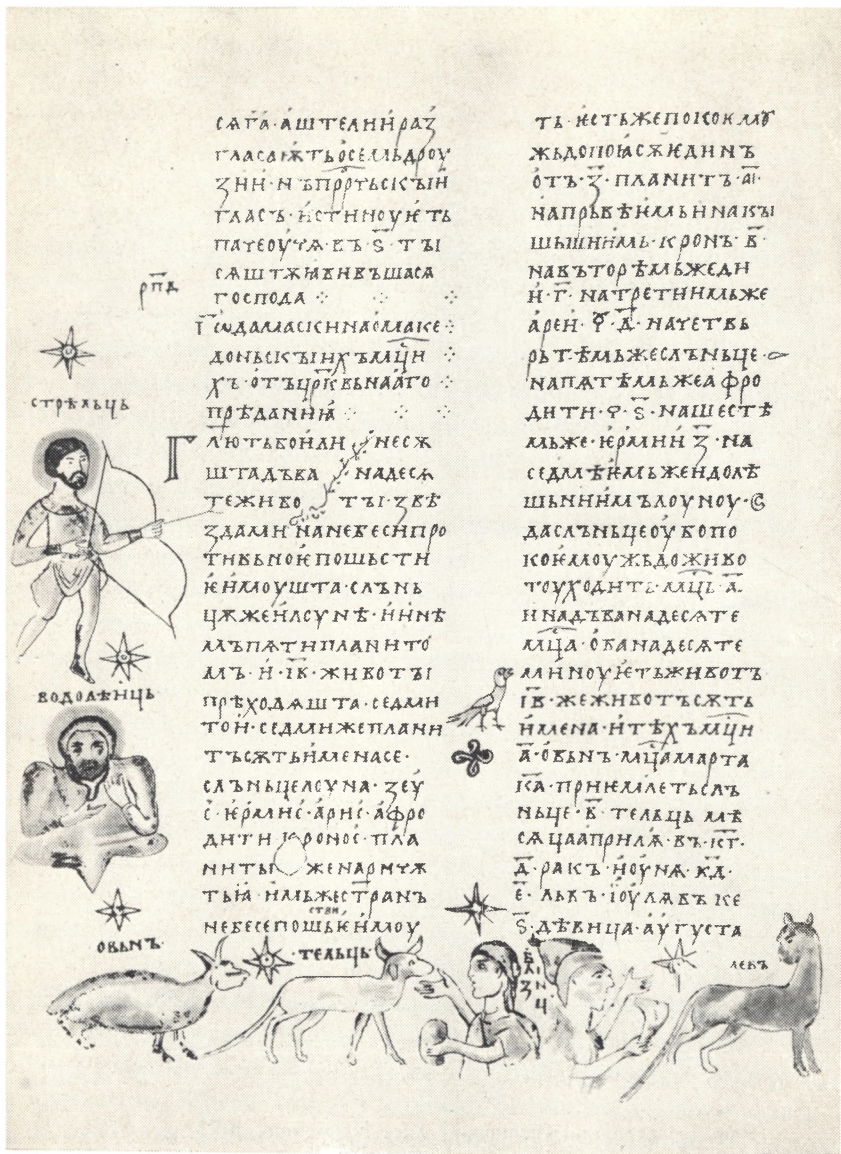 СѦГА҆·АШТЕЛИИ҆РАꙀ
ГЛАСАѬТЬОСЕМЬДРОУ
ꙀИИ·НЪПРⷪ҇РТЬСКꙐИ҆
ГЛАСЪ·И҆СТИНОУѤТЬ
ПАЧЕОУЧѦ·ВЪ·Ѕ҃·ТꙐ
СѦШТѪꙖВИВЪШАСѦ
рп҃д
ГОСПОДА ⁘ ⁘ ⁘
І҆ѠДАМАСКИНАОМАКЕ⁘
ДОНЬСКꙐИХЪМЦ҃И
ХЪ·ОТЪЦР҃КВЬНААГО ⁘
ПРѢДАНИꙖ ⁘ ⁘ ⁘
ГЛЮТЬБОИ҆ЛИ НЕСѪ
ШТАДЪВА НАДЕСѦ
ТЕЖИВО ТꙐ·ꙀВѢ
ꙀДАМИ НАНЕБЕСИПРО
ТИВЬНОѤПОШЬСТИ
ѤИ҆МОУШТА·СЛЪНЬ
ЦѪЖЕИ҆ЛОУНѢ·И҆И҆НѢ
МЪПѦТИПЛАНИТО
МЪ·И҆·І҃В·ЖИВОТꙐ
ПРѢХОДѦШТА·СЕДМИ
ТОИ҆·СЕДМИЖЕПЛАНИ
ТЪСѪТЬИ҆МЕНАСЕ·
СЛЪНЬЦЕЛОУНА·ꙀЕУ
С·Е҆РМИС·А҆РИС·А҆ФРО
ДИТИ КРОНОС·ПЛА
НИТꙐ ЖЕНАРИЧѪ
ТЬІА·И҆МЬЖЕСТРАНЪ
стви
НЕБЕСЕПОШЬѤИ҆МОУ
ТЬ·ѤСТЬЖЕПОКОКМОУ
ЖЬДОПОꙖСѪѤДИНЪ
О҆ТЪ·Ꙁ҃·ПЛАНИТЪ·А҃І·
НАПРЬВѢИ҆МЬИ҆НАКꙐ
ШЬШНИИ҆МЬ·КРОНЪ·В҃·
НАВЪТОРѢМЬЖЕДИ
И҆·Г҃·НАТРЕТИИМЬЖЕ
А҆РЕИ҆·Д҃·НАЧЕТВЬ
РЬТѢМЬЖЕСЛЪНЬЦЕ·
НАПѦТѢМЬЖЕАФРО
ДИТИ·♀·Ѕ҃·НАШЕСТѢ
МЬЖЕ·Е҆РМИИ҆·Ꙁ҃·НА
СЕДМѢИ҆МЬЖЕНДОЛѢ
ШЬНИИ҆МЪЛОУНОУ·
ДАСЛЪНЬЦЕОУБОПО
КОѤМОУЖЬДОЖИВО
ТОУХОДИТЬ·МЦ҃Ь·А҃·
И҆НАДЪВАНАДЕСѦТЕ
МЦ҃А·ОБАНАДЕСѦТЕ
МИНОУѤТЬЖИВОТЪ·
І҃В·ЖЕЖИВОТЪСѪТЬ
И҆МЕНА·И҆ТѢХЪМЦ҃И
А҃·ОВЬНЪ·МЦ҃АМАРТА
К҃А·ПРИѤМЛЕТЬСЛЪ
НЬЦЕ·В҃·ТЕЛЬЦЬ МѢ
СѦЦААПРИЛѦ·ВЪ·К҃Г·
Д҃·РАКЪ·И҆ОУНѦ·К҃Д·
Е҃·ЛЬВЪ·І҆ОУЛѦВЪКЕ
Ѕ҃·ДѢВИЦА·АУГУСТА
СТРѢЛЬЦЬ
ВОДОЛѢИЦЬ
ОВЬНЪ·
·ТЕЛЬЦЬ·
БЛИꙀНЦ
ЛЕВЪ